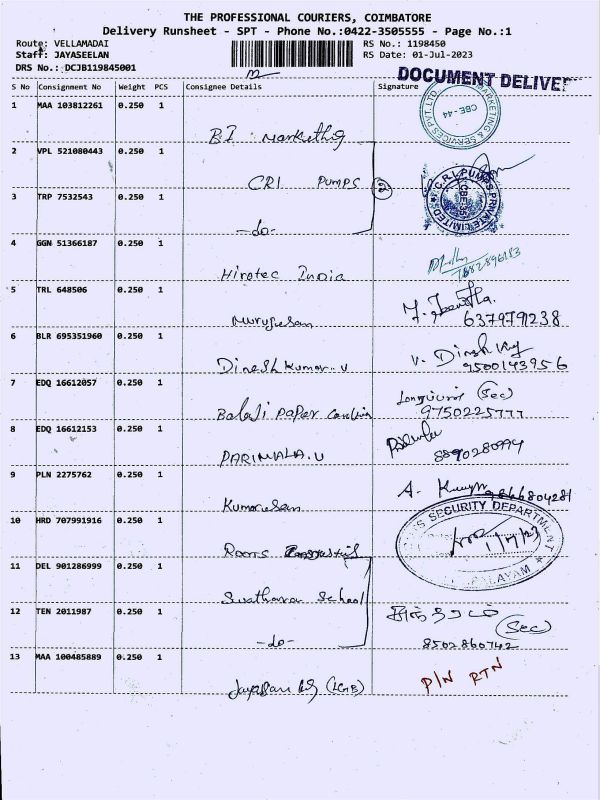 THE PROFESSIONAL COURIERS, COIMBATORE
Delivery Runsheet - SPT - Phone No.:0422-3505555 - Page No.:1
Route: VELLAMADAI
RS No.: 1198450
Staff: JAYASEELAN
RS Date: 01-Jul-2023
DRS No.: DCJB119845001
DOCUMENT DELIVE
S No Consignment No Weight PCS Consignee Details Signature
1 MAA 103812261 0.250 1
BI Marketing
MARKETING & SERVICES PVT. LTD. CBE-44
2 VPL 521080443 0.250 1
CRI PUMPS
C.R.I. PUMPS PRIVATE LIMITED CBE-35
3 TRP 7532543 0.250 1
-do-
4 GGN 51366187 0.250 1
Hirotec India
7882896183
5 TRL 648506 0.250 1
Murugesan
6379791238
6 BLR 695351960 0.250 1
Dinesh Kumar.V
V. Dinesh
9500143956
7 EDQ 16612057 0.250 1
Balaji Paper
(Sec)
9750225777
8 EDQ 16612153 0.250 1
PARIMALA.U
8890280994
9 PLN 2275762 0.250 1
Kumaresan
A.
9866804281
10 HRD 707991916 0.250 1
Roots
SECURITY DEPARTMENT
1/7/23
11 DEL 901286999 0.250 1
School
12 TEN 2011987 0.250 1
-do-
(Sec)
8502860742
13 MAA 100485889 0.250 1
(LGB)
P/N RTN